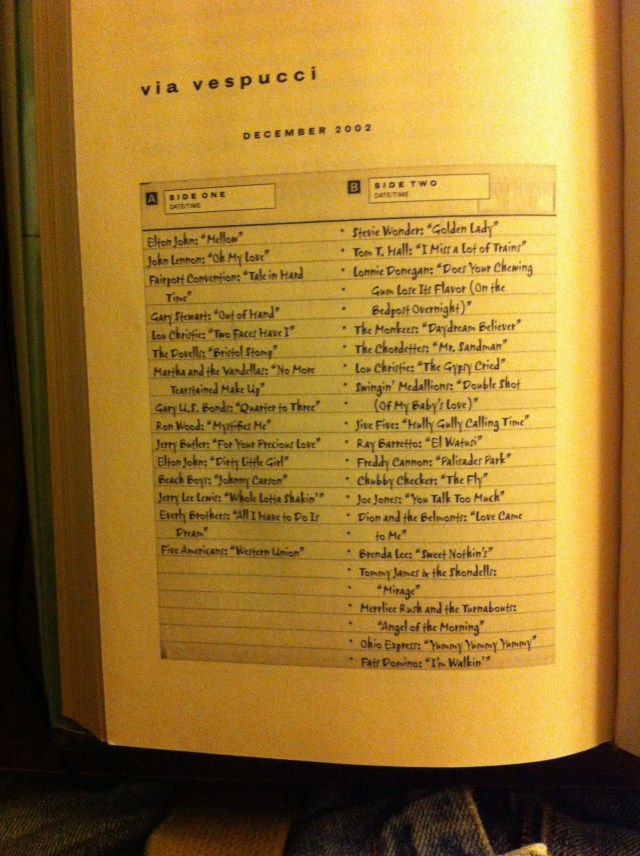 via vespucci
DECEMBER 2002
A SIDE ONE
DATE/TIME
Elton John: "Mellow"
John Lennon: "Oh My Love"
Fairport Convention: "Tale in Hard
Time"
Gary Stewart: "Out of Hand"
Lou Christie: "Two Faces Have I"
The Dovells: "Bristol Stomp"
Martha and the Vandellas: "No More
Tearstained Make Up"
Gary U.S. Bonds: "Quarter to Three"
Ron Wood: "Mystifies Me"
Jerry Butler: "For Your Precious Love"
Elton John: "Dirty Little Girl"
Beach Boys: "Johnny Carson"
Jerry Lee Lewis: "Whole Lotta Shakin'"
Everly Brothers: "All I Have to Do Is
Dream"
Five Americans: "Western Union"
B SIDE TWO
DATE/TIME
Stevie Wonder: "Golden Lady"
Tom T. Hall: "I Miss a Lot of Trains"
Lonnie Donegan: "Does Your Chewing
Gum Lose Its Flavor (On the
Bedpost Overnight)"
The Monkees: "Daydream Believer"
The Chordettes: "Mr. Sandman"
Lou Christie: "The Gypsy Cried"
Swingin' Medallions: "Double Shot
(Of My Baby's Love)"
Jive Five: "Hully Gully Calling Time"
Ray Barretto: "El Watusi"
Freddy Cannon: "Palisades Park"
Chubby Checker: "The Fly"
Joe Jones: "You Talk Too Much"
Dion and the Belmonts: "Love Came
to Me"
Brenda Lee: "Sweet Nothin's"
Tommy James & the Shondells:
"Mirage"
Merrilee Rush and the Turnabouts:
"Angel of the Morning"
Ohio Express: "Yummy Yummy Yummy"
Fats Domino: "I'm Walkin'"